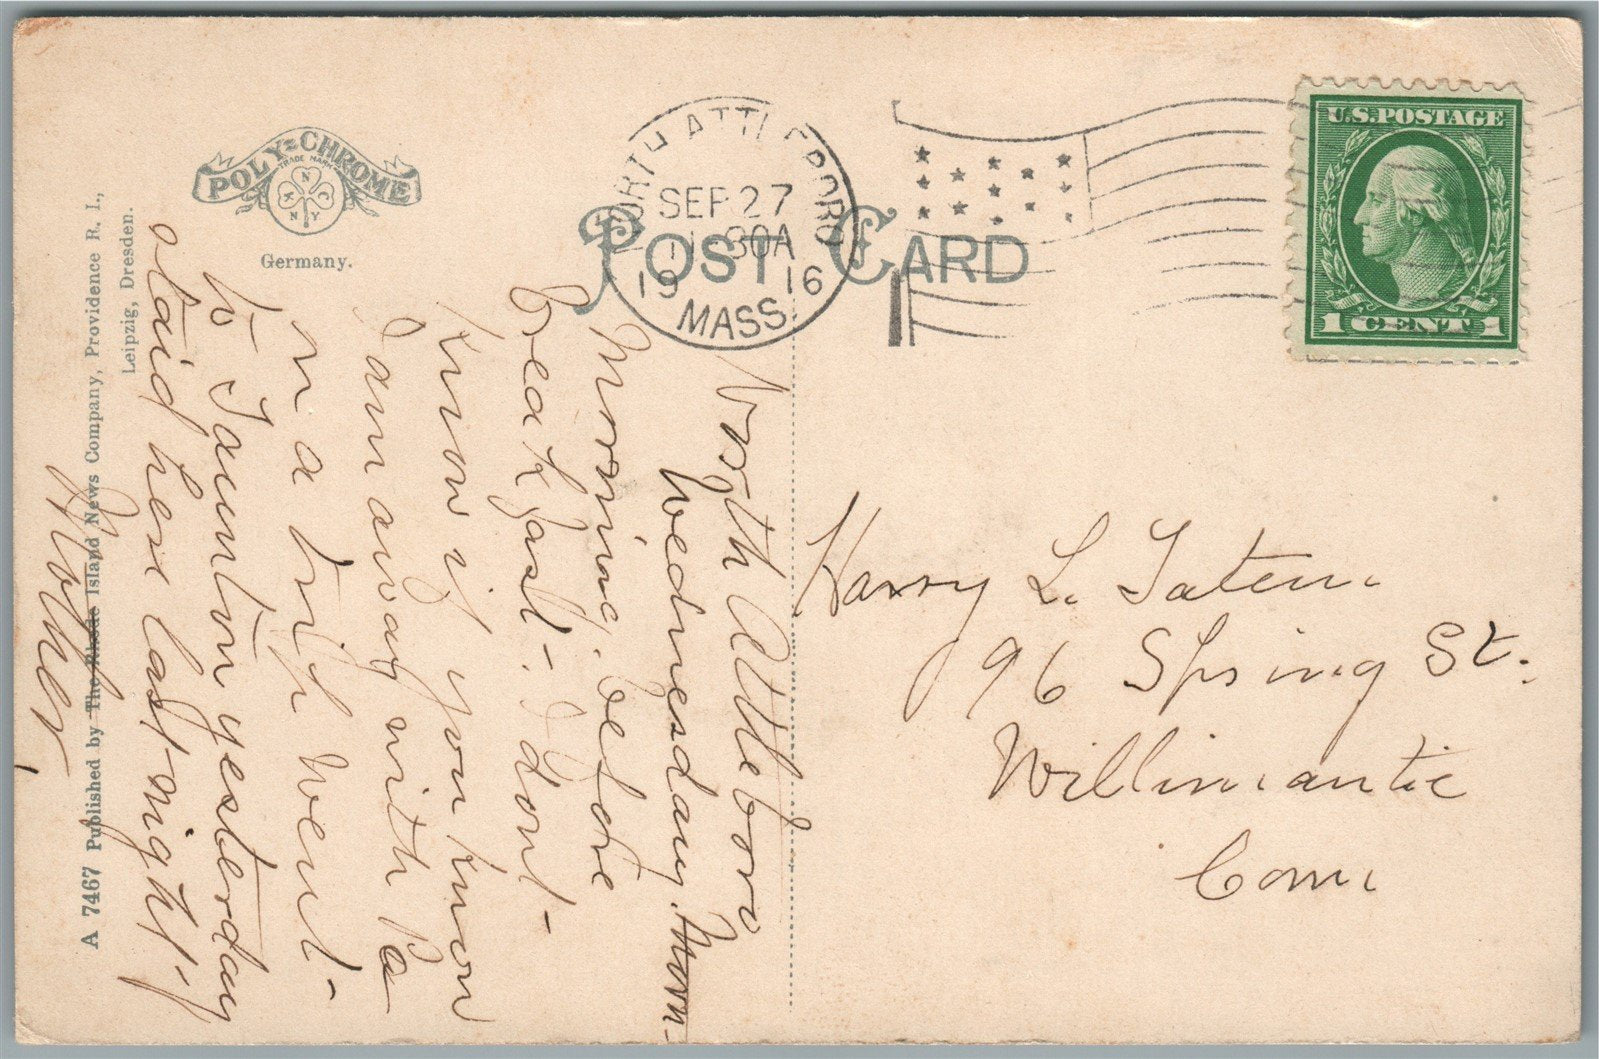 POLY-CHROME
TRADE MARK
N
A C
N Y
Germany.
POST CARD
NORTH ATTLEBORO
SEP 27
11 30A
19 16
MASS.
U.S. POSTAGE
1 CENT 1
A 7467 Published by The Rhode Island News Company, Providence R. I.,
Leipzig, Dresden.
North Attleboro
Wednesday Morn-
Morning, before
breakfast- I dont-
know if you know
I am away with Pa
on a trip went-
to Taunton yesterday
staid here last night-
Mother
Harry L. Tatem
96 Spring St.
Willimantic
Conn